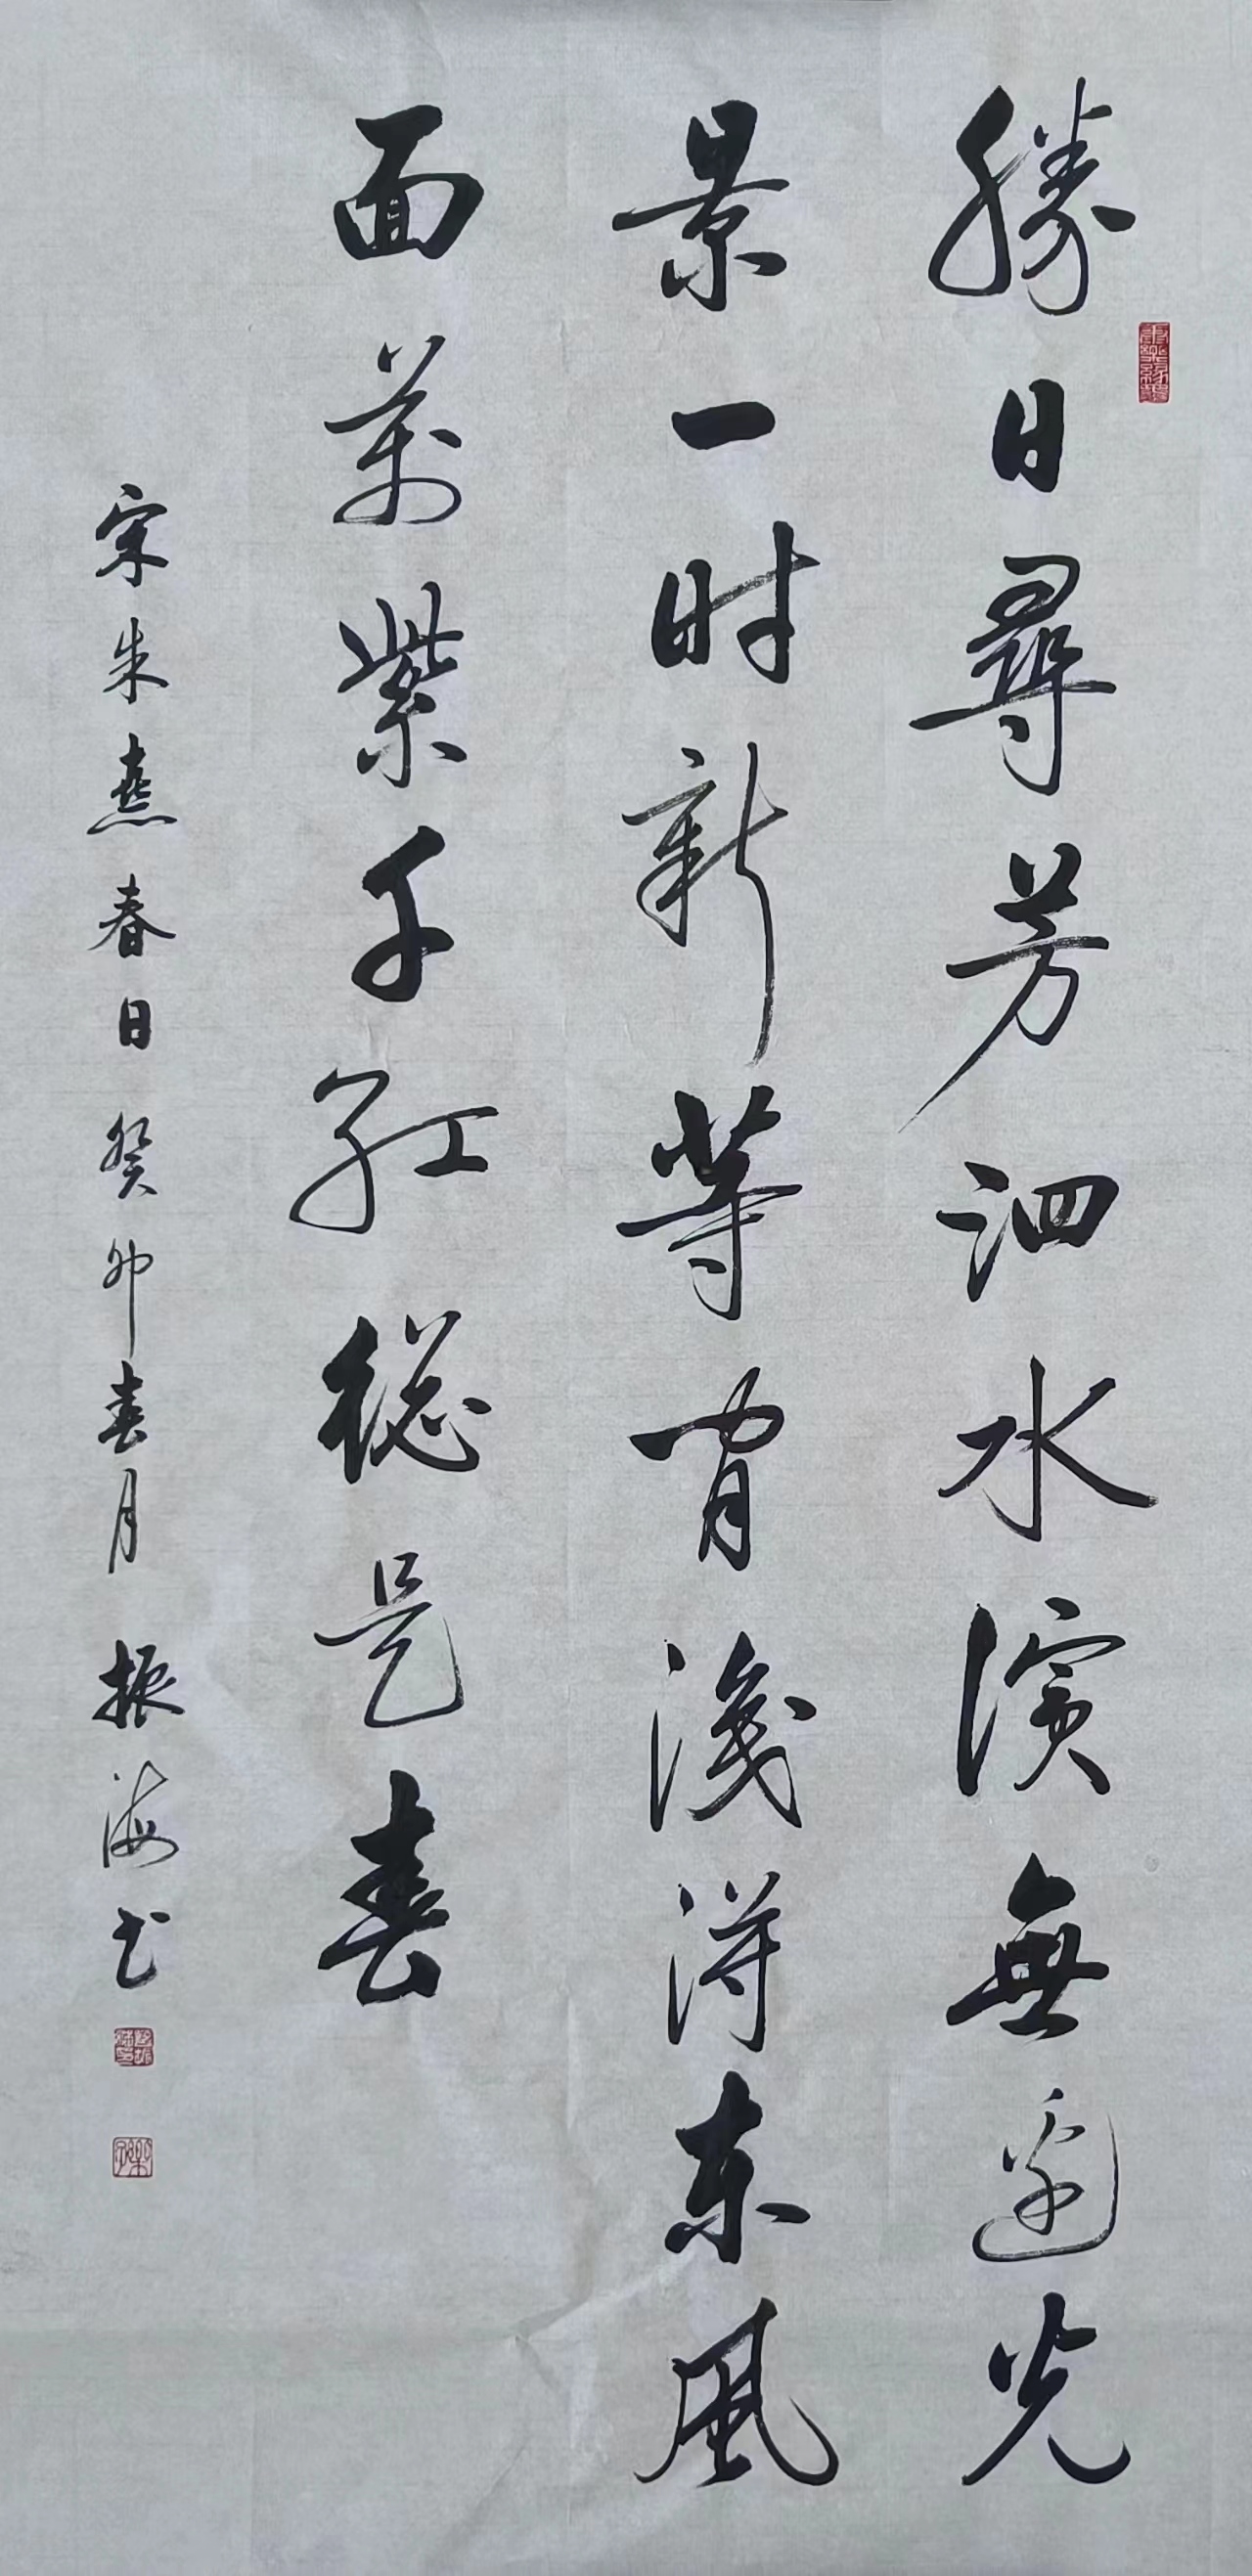 勝日尋芳泗水濱無邊光
景一时新等閒識得東風
面萬紫千紅總是春
宋朱熹春日癸卯春月振海书